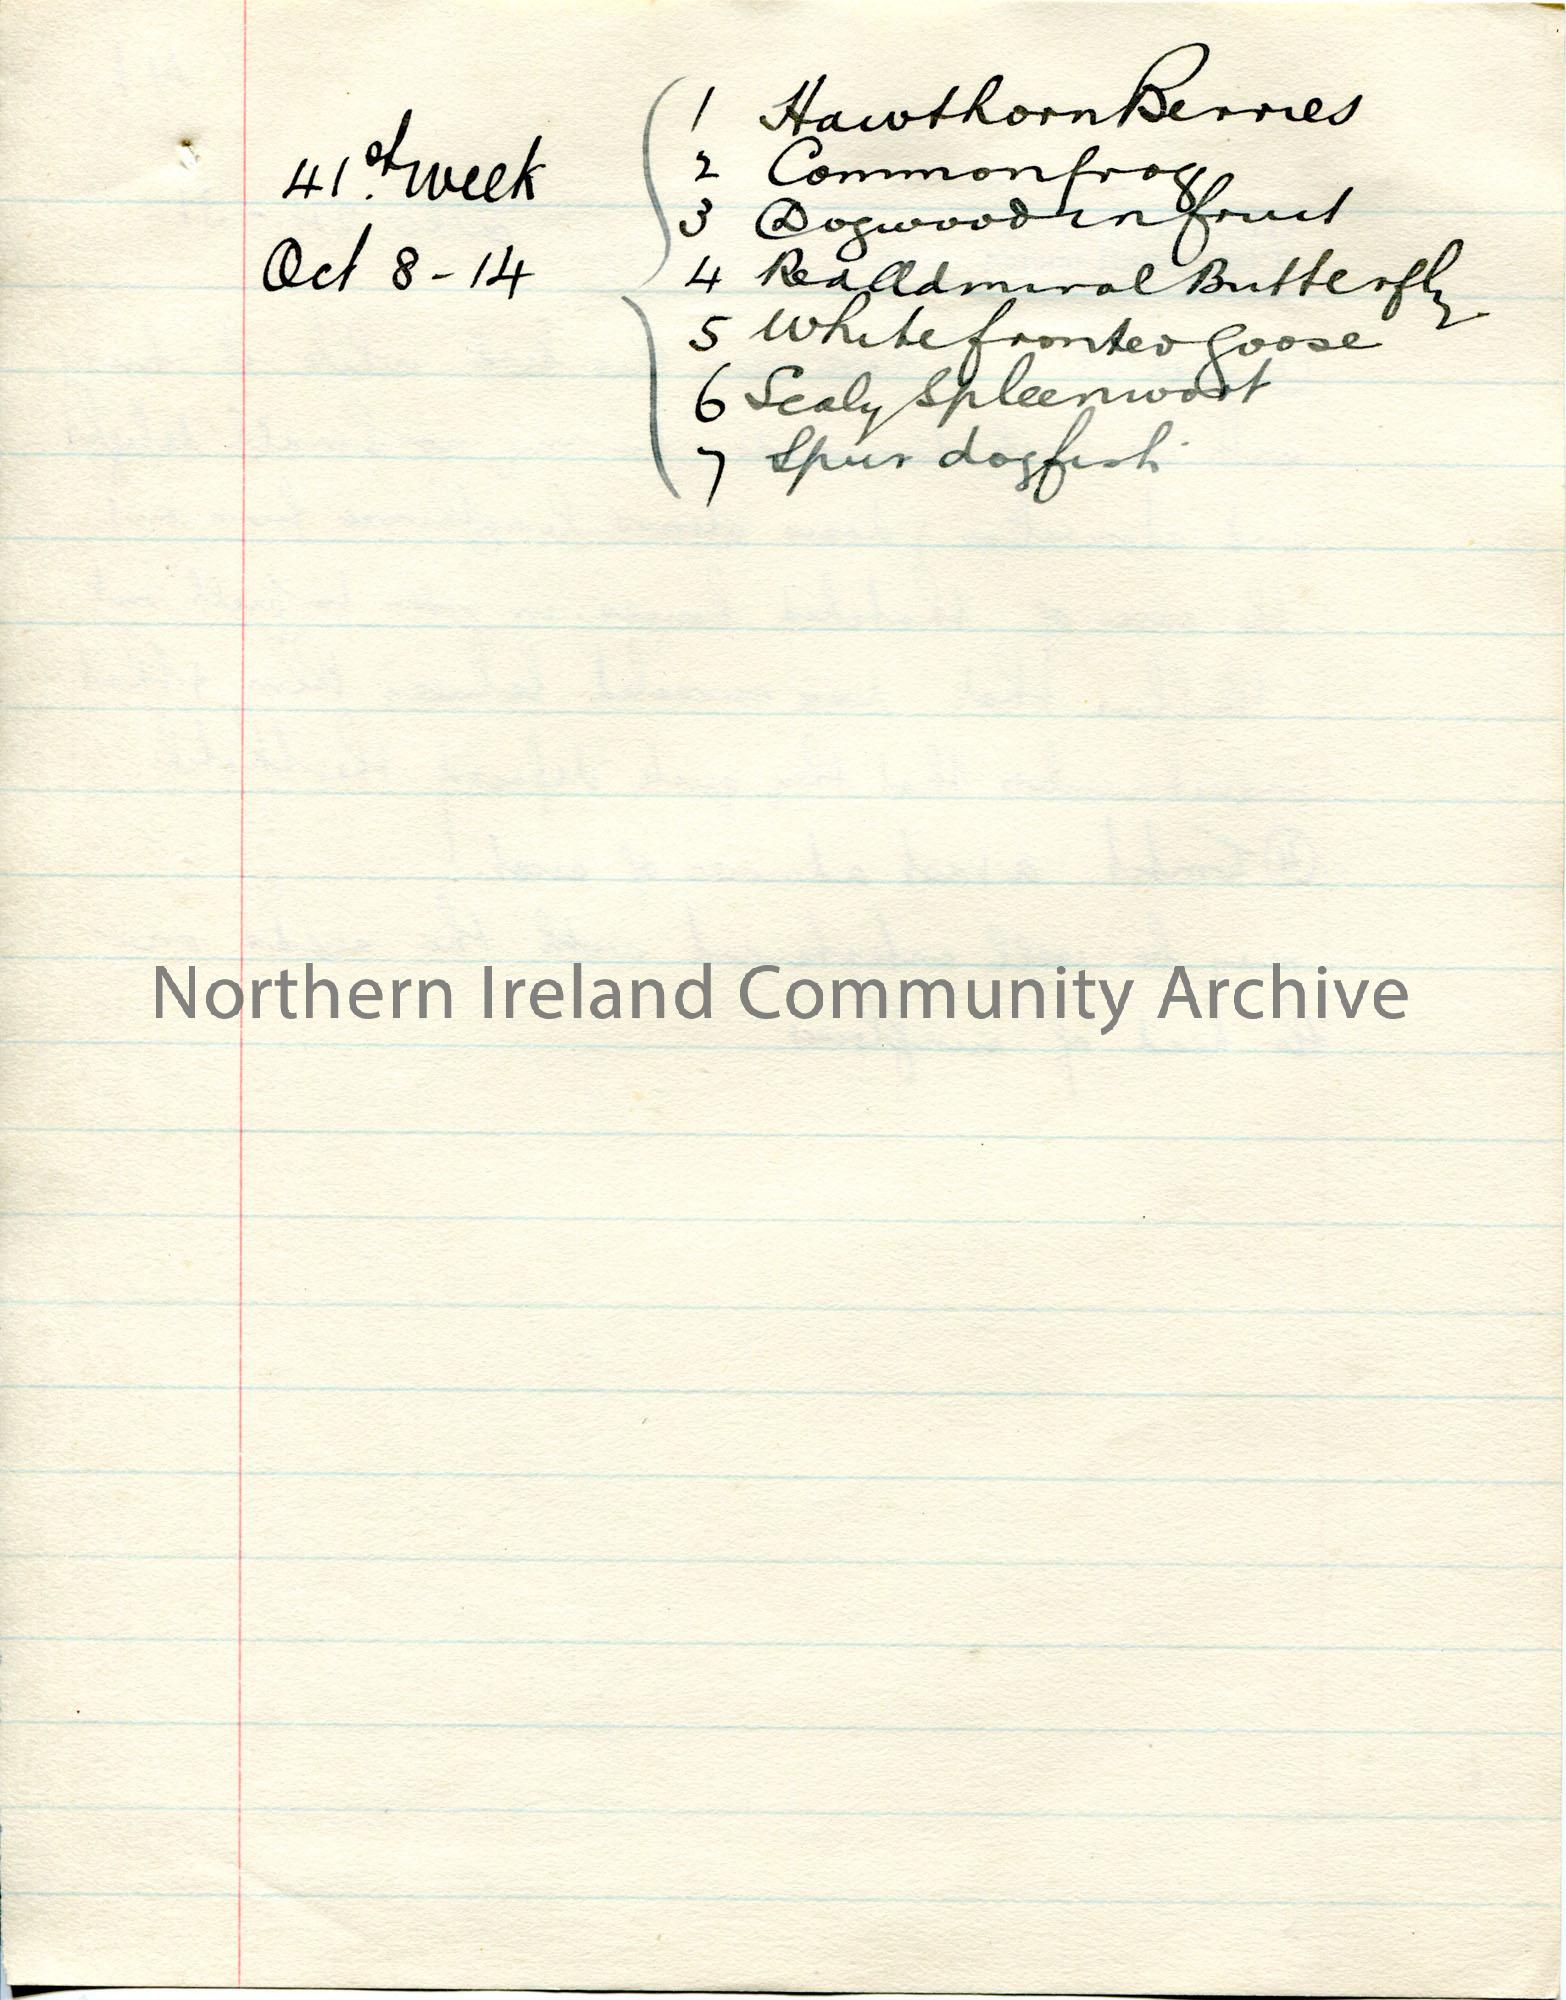 41st week
Oct 8-14
1 Hawthorn Berries
2 Common frog
3 Dogwood in fruit
4 Red Admiral Butterfly
5 White fronted Goose
6 Scaly Spleenwort
7 Spur dogfish
Northern Ireland Community Archive